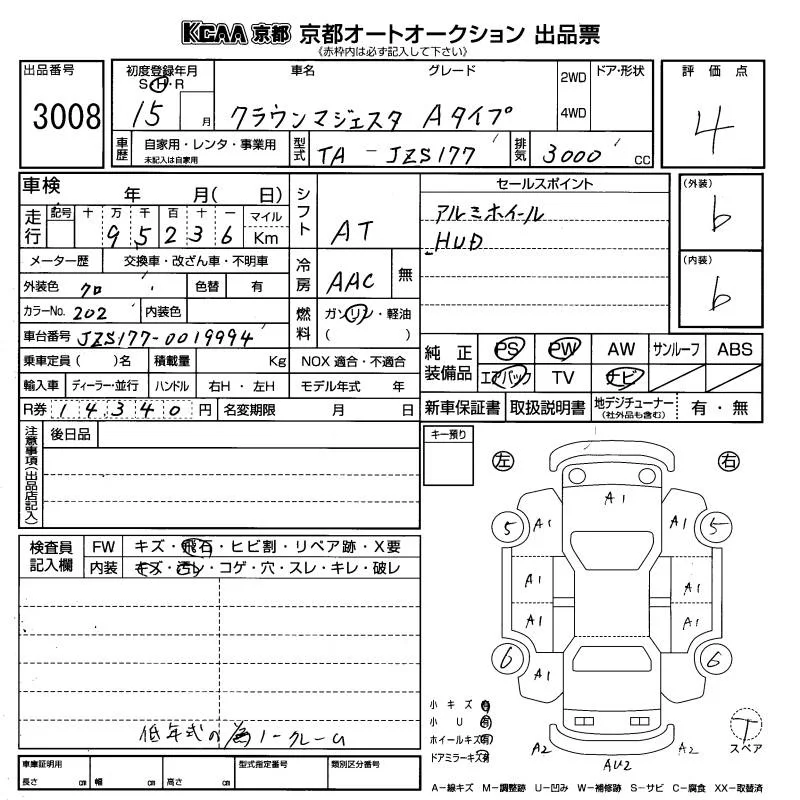 KCAA 京都 京都オートオークション 出品票
《赤枠内は必ず記入して下さい》
出品番号
3008
初度登録年月
S・H・R
15 月
車名
グレード
クラウンマジェスタ Aタイプ
2WD
4WD
ドア・形状
評価点
4
車歴
自家用・レンタ・事業用
未記入は自家用
型式
TA-JZS177
排気
3000 CC
車検 年 月( 日)
走行
記号 十 万 千 百 十 一 マイル
9 5 2 3 6 Km
メーター歴 交換車・改ざん車・不明車
外装色 クロ 色替 有
カラーNo. 202 内装色
車台番号 JZS177-0019994
乗車定員( )名 積載量 Kg NOX 適合・不適合
輸入車 ディーラー・並行 ハンドル 右H・左H モデル年式 年
R券 14340 円 名変期限 月 日
シフト
AT
冷房
AAC 無
燃料
ガソリン・軽油
( )
セールスポイント
アルミホイール
HUD
(外装)
b
(内装)
b
純正装備品
PS PW AW サンルーフ ABS
エアバック TV ナビ
新車保証書 取扱説明書 地デジチューナー (社外品も含む) 有・無
注意事項(出品店記入)
後日品
キー預り
左
右
検査員記入欄
FW キズ・飛石・ヒビ割・リペア跡・X要
内装 キズ・汚レ・コゲ・穴・スレ・キレ・破レ
低年式の為ノークレーム
A1
5 A1 A1 5
A1 A1
A1 A1
6 A1 6
A2 AU2 A2
小キズ 有
小U 有
ホイールキズ 有
ドアミラーキズ 有
T
スペア
車庫証明用
長さ cm 幅 cm 高さ cm
型式指定番号
類別区分番号
A-線キズ M-調整跡 U-凹み W-補修跡 S-サビ C-腐食 XX-取替済